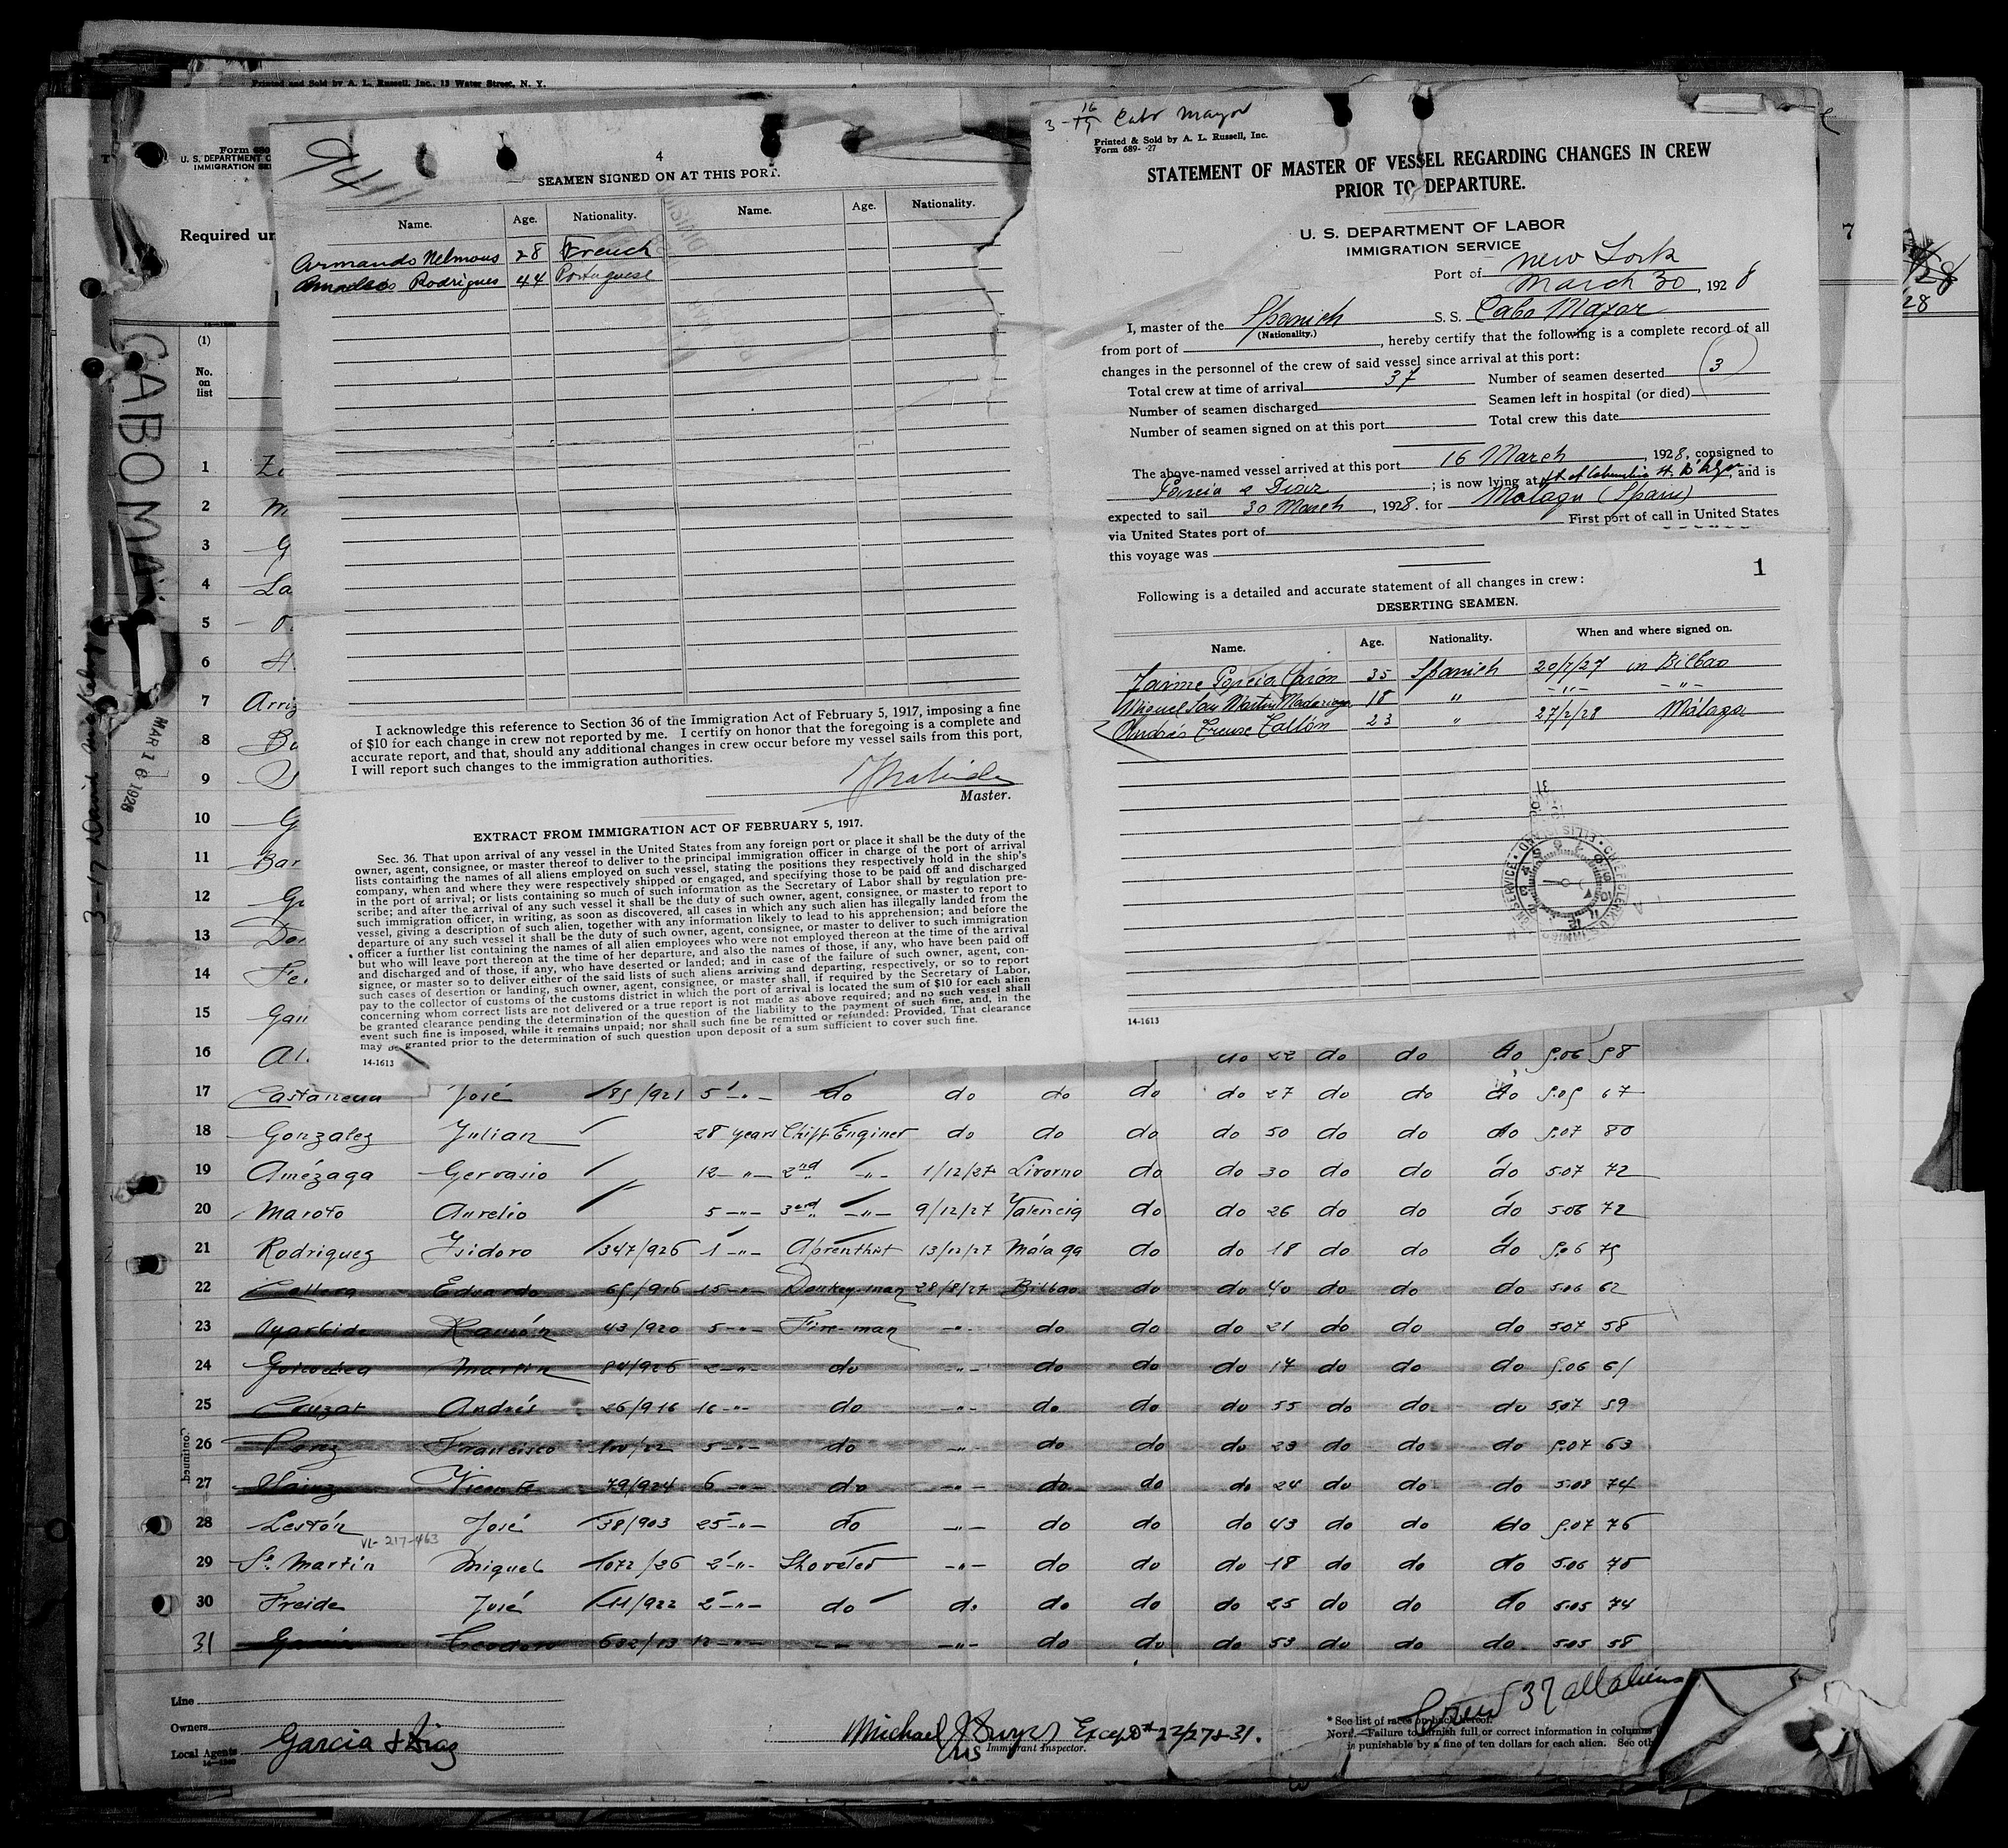 Printed and Sold by A. L. Russell, Inc., 13 Water Street, N. Y.
Form 680
U. S. DEPARTMENT O
IMMIGRATION SE
Required un
(1)
No.
on
list
CABO MA
MAR 16 1928
941
4
SEAMEN SIGNED ON AT THIS PORT.
Name. Age. Nationality. Name. Age. Nationality.
Armando Nelmous 28 French
Amadeo Rodrigues 44 Portuguese
I acknowledge this reference to Section 36 of the Immigration Act of February 5, 1917, imposing a fine
of $10 for each change in crew not reported by me. I certify on honor that the foregoing is a complete and
accurate report, and that, should any additional changes in crew occur before my vessel sails from this port,
I will report such changes to the immigration authorities.
Master.
EXTRACT FROM IMMIGRATION ACT OF FEBRUARY 5, 1917.
Sec. 36. That upon arrival of any vessel in the United States from any foreign port or place it shall be the duty of the
owner, agent, consignee, or master thereof to deliver to the principal immigration officer in charge of the port of arrival
lists containing the names of all aliens employed on such vessel, stating the positions they respectively hold in the ship's
company, when and where they were respectively shipped or engaged, and specifying those to be paid off and discharged
in the port of arrival; or lists containing so much of such information as the Secretary of Labor shall by regulation pre-
scribe; and after the arrival of any such vessel it shall be the duty of such owner, agent, consignee, or master to report to
such immigration officer, in writing, as soon as discovered, all cases in which any such alien has illegally landed from the
vessel, giving a description of such alien, together with any information likely to lead to his apprehension; and before the
departure of any such vessel it shall be the duty of such owner, agent, consignee, or master to deliver to such immigration
officer a further list containing the names of all alien employees who were not employed thereon at the time of the arrival
but who will leave port thereon at the time of her departure, and also the names of those, if any, who have been paid off
and discharged and of those, if any, who have deserted or landed; and in case of the failure of such owner, agent, con-
signee, or master so to deliver either of the said lists of such aliens arriving and departing, respectively, or so to report
such cases of desertion or landing, such owner, agent, consignee, or master shall, if required by the Secretary of Labor,
pay to the collector of customs of the customs district in which the port of arrival is located the sum of $10 for each alien
concerning whom correct lists are not delivered or a true report is not made as above required; and no such vessel shall
be granted clearance pending the determination of the question of the liability to the payment of such fine, and, in the
event such fine is imposed, while it remains unpaid; nor shall such fine be remitted or refunded: Provided, That clearance
may be granted prior to the determination of such question upon deposit of a sum sufficient to cover such fine.
14-1613
3-16/17 Cabo Mayor
Printed & Sold by A. L. Russell, Inc.
Form 689- -27
STATEMENT OF MASTER OF VESSEL REGARDING CHANGES IN CREW
PRIOR TO DEPARTURE.
U. S. DEPARTMENT OF LABOR
IMMIGRATION SERVICE
Port of New York
March 30, 1928
I, master of the Spanish S. S. Cabo Mayor
(Nationality.)
from port of , hereby certify that the following is a complete record of all
changes in the personnel of the crew of said vessel since arrival at this port:
Total crew at time of arrival 37 Number of seamen deserted 3
Number of seamen discharged Seamen left in hospital (or died)
Number of seamen signed on at this port Total crew this date
The above-named vessel arrived at this port 16 March, 1928, consigned to
Garcia & Diaz; is now lying at ft of Columbia St. B'klyn and is
expected to sail 30 March, 1928. for Malaga (Spain)
via United States port of First port of call in United States
this voyage was
1
Following is a detailed and accurate statement of all changes in crew:
DESERTING SEAMEN.
Name. Age. Nationality. When and where signed on.
Jaime Garcia 35 Spanish 20/7/27 in Bilbao
Miguel San Martin Madariaga 18 " -"- -"-
Andrés Freuse Tallón 23 " 27/2/28 Málaga
14-1613
7
28
1
2
3
4 La
5
6
7 Arriz
8
9
10
11 Bar
12
13
14 Fe
15
16 do 22 do do do 5.06 58
17 Castaneda José 85/921 5 -"- do do do do do 27 do do do 5.05 67
18 Gonzalez Julian 28 years Chiff Enginer do do do do 50 do do do 5.07 80
19 Amézaga Gervasio 12 -"- 2nd -"- 1/12/27 Livorno do do 30 do do do 5.07 72
20 Maroto Aurelio 5 -"- 3rd -"- 9/12/27 Valencia do do 26 do do do 5.06 72
21 Rodriguez Isidoro 347/926 1 -"- Aprenthist 13/12/27 Málaga do do 18 do do do 5.06 75
22 Eduardo 65/916 15 -"- Donkey-man 28/8/27 Bilbao do do 40 do do do 5.06 62
23 Ayarbide Ramón 43/920 5 -"- Fire-man -"- do do do 21 do do do 5.07 58
24 Goicoechea Martin 84/926 2 -"- do -"- do do do 17 do do do 5.06 61
25 Andrés 26/916 16 -"- do -"- do do do 55 do do do 5.07 59
26 Perez Francisco 100/22 5 -"- do -"- do do do 23 do do do 5.07 63
27 Sainz Vicente 79/924 6 -"- do -"- do do do 24 do do do 5.08 74
28 Lestón José 38/903 25 -"- do -"- do do do 43 do do do 5.07 76
VL-217-463
29 Sn Martin Miguel 1072/26 2 -"- Shoveler -"- do do do 18 do do do 5.06 70
30 Freide José 11/922 2 -"- do do do do do 25 do do do 5.05 74
31 Garcia Teodoro 632/13 12 -"- -"- -"- do do do 53 do do do 5.05 58
Line
Owners
Local Agents Garcia & Diaz
Immigrant Inspector.
Except # 22/27 & 31.
Crew 37 all aliens
* See list of races on back hereof.
NOTE.—Failure to furnish full or correct information in columns
is punishable by a fine of ten dollars for each alien. See oth